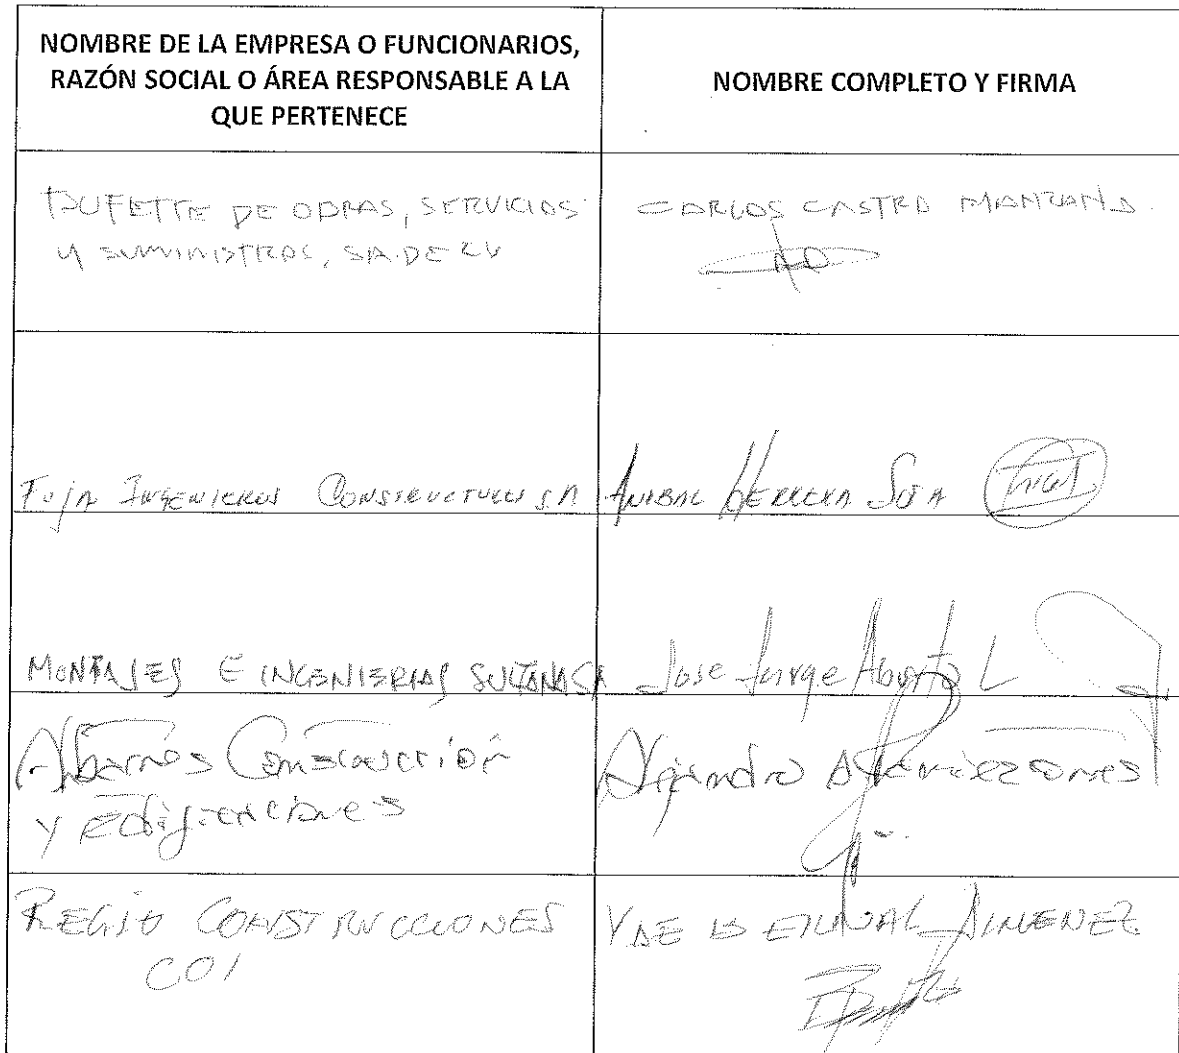 NOMBRE DE LA EMPRESA O FUNCIONARIOS,
RAZÓN SOCIAL O ÁREA RESPONSABLE A LA
QUE PERTENECE
NOMBRE COMPLETO Y FIRMA
BUFETTE DE OBRAS, SERVICIOS
Y SUMINISTROS, SA. DE CV
CARLOS CASTRO MANZANO.
INGENIEROS CONSTRUCTORES SA
ANIBAL HERRERA
MONTAJES E INGENIERIAS SULTANA SA
Jose Jorge Aburto L
Construcción
y edificaciones
Alejandro
REGIO CONSTRUCCIONES
COI
JIMENEZ